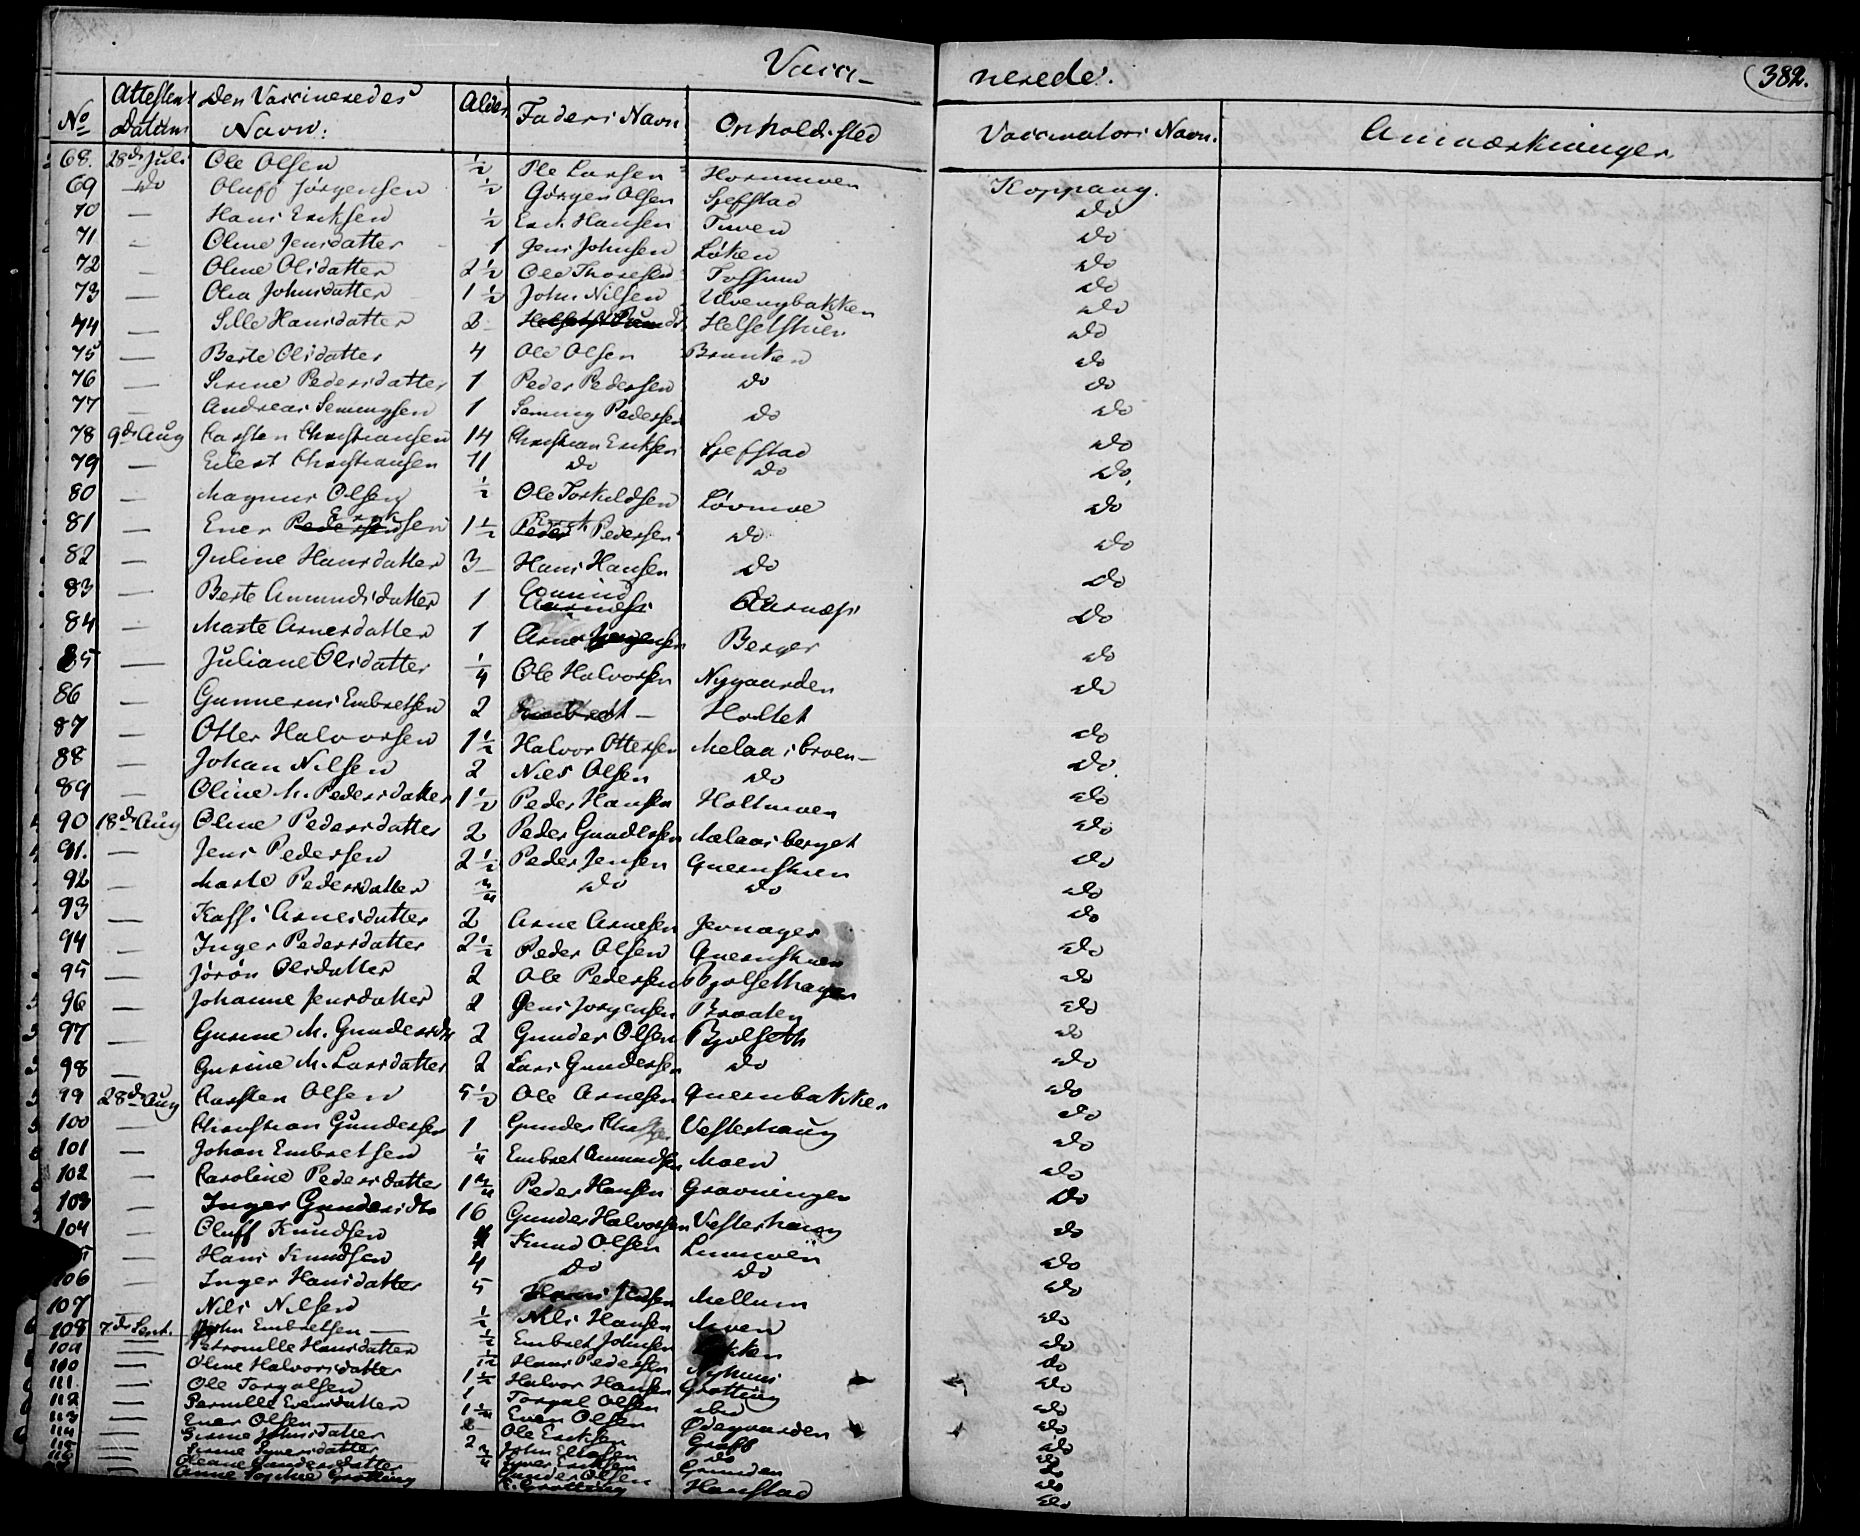 Vacci-
nerede.
382.
No Attestens Datum Den Vaccineredes Navn: Alder Faders Navn Opholdssted Vaccinators Navn. Anmærkninger
68. 28de Juli Ole Olsen ½ Ole Larsen Hornmoen Koppang.
69 Do Oluff Jørgensen ½ Jørgen Olsen Gjefstad Do
70 — Hans Eriksen ½ Erik Hansen Tuven Do
71 — Oline Jensdatter 1 Jens Johnsen Løken Do
72 — Oline Olsdatter 2½ Ole Thoresen Do
73 — Olea Johnsdatter 1½ John Nilsen Ulvengbakken Do
74 — Sille Hansdatter 2 Do
75 — Berte Olsdatter 4 Ole Olsen Do
76 — Serine Pedersdatter 1 Peder Pedersen Do Do
77 — Andreas Semmingsen 1 Seming Pedersen Do Do
78 9de Aug Carsten Christiansen 14 Christian Eriksen Gjefstad Do
79 — Edert Christiansen 11 Do Do Do,
80 — Magnus Olsen ½ Ole Torkildsen Lövmoe Do
81 — Ener 1½ Pedersen Do Do
82 — Juline Hansdatter 3 Hans Hansen Do Do
83 — Berte Amundsdatter 1 Amund Aarnæs Do
84 — Marte Arnesdatter 1 Arne Berger Do
85 — Juliane Olsdatter ¼ Ole Halvorsen Nygaarden Do
86 — Gunnerus Embretsen 2 Embret — Holtet Do
87 — Otter Halvorsen 1½ Halvor Ottersen Melaasbroen Do
88 — Johan Nilsen 2 Niels Olsen Do Do
89 — Oline M. Pedersdatter 1½ Peder Hansen Holtmoen Do
90 18de Aug Oline Pedersdatter 2 Peder Gundersen Melaasberget Do
91. — Jens Pedersen 2½ Peder Jensen Quernstuen Do
92 — Marte Pedersdatter ¾ Do Do Do
93 — Kaffi Arnesdatter 2 Arne Arnesen Jevnager Do
94 — Inger Pedersdatter 2½ Peder Olsen Quernstuen Do
95 — Jörön Olsdatter 2 Ole Pedersen Bjølsethagen Do
96 — Johanne Jensdatter 2 Jens Jorgensen Braaten Do
97 — Gurine M. Gundersdtr 2 Gunder Olsen Bjølseth Do
98 — Gurine M. Larsdatter 2 Lars Gundersen Do Do
99 28de Aug Karsten Olsen 5½ Ole Arnesen Quernbakken Do
100 — Christian Gundersen 1 Gunder Vesterhaug Do
101 — Johan Embretsen ¼ Embret Amundsen Moen Do
102 — Karoline Pedersdatter 1¾ Peder Hansen Gravningen Do
103 — Inger Gundersdtr 16 Gunder Halvorsen Vesterhaug Do
104 — Oluff Knudsen Knud Olsen Do
— Hans Knudsen 4 Do Do Do
106 — Inger Hansdatter 5 Hans Jensen Mellum Do
107 — Nils Nilsen ½ Nils Hansen Moen Do
108 7de Sept. John Embretsen ½ Embret Johnsen Do
109 — Petronille Hansdatter ½ Hans Pedersen Nyhuus Do
110 — Oline Halvorsdatter 1½ Halvor Hansen Grøtting Do
111 — Ole Torgalsen 1 Torgal Olsen Do
112 — Pernille Evensdatter 1¼ Even Olsen Ødegaarden Do
113 — Ener Olsen Ole Eriksen Do
114 — Johnsdatter 2 John Do Do
115 — Syversdatter ¾ Syver Eriksen Grinden Do
116 — Oleane Gundersdatter Gunder Olsen Do
— Anne Sophie Grøtting Grøtting Hanstad Do